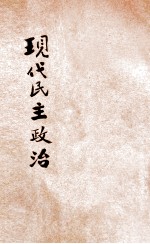 現代民主政治